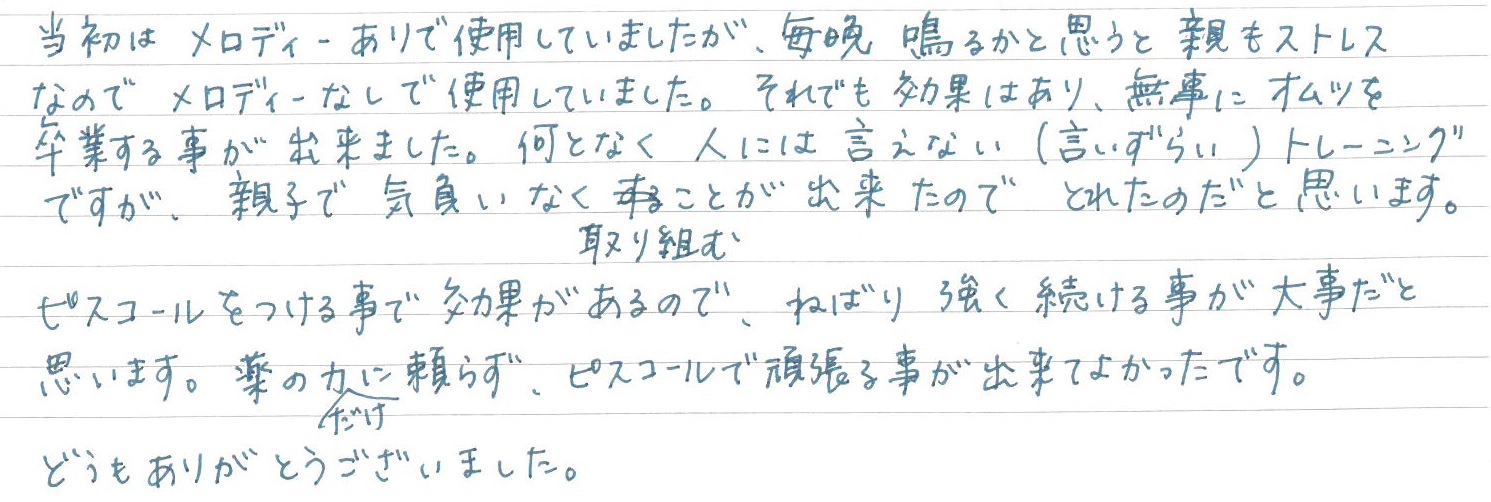 当初は メロディーありで使用していましたが、毎晩 鳴るかと思うと 親もストレス
なので メロディーなしで使用していました。それでも 効果はあり、無事に オムツを
卒業する事が出来ました。何となく 人には 言えない（言いずらい）トレーニング
ですが、親子で 気負いなく することが 出来たので とれたのだと思います。
取り組む
ピスコールをつける事で効果があるので、ねばり強く続ける事が大事だと
思います。薬の力に頼らず、ピスコールで頑張る事が出来てよかったです。
だけ
どうもありがとうございました。